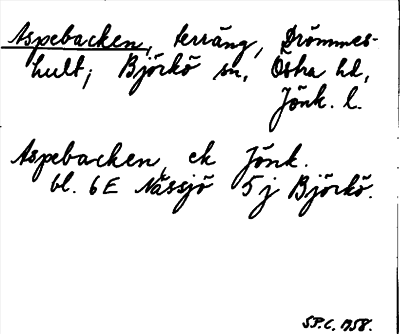 Aspebacken, terräng, Drömmes-
hult; Björkö sn, Östra hd,
Jönk. l.
Aspebacken, ek Jönk.
bl. 6E Nässjö 5j Björkö.
S.P.C. 1958.